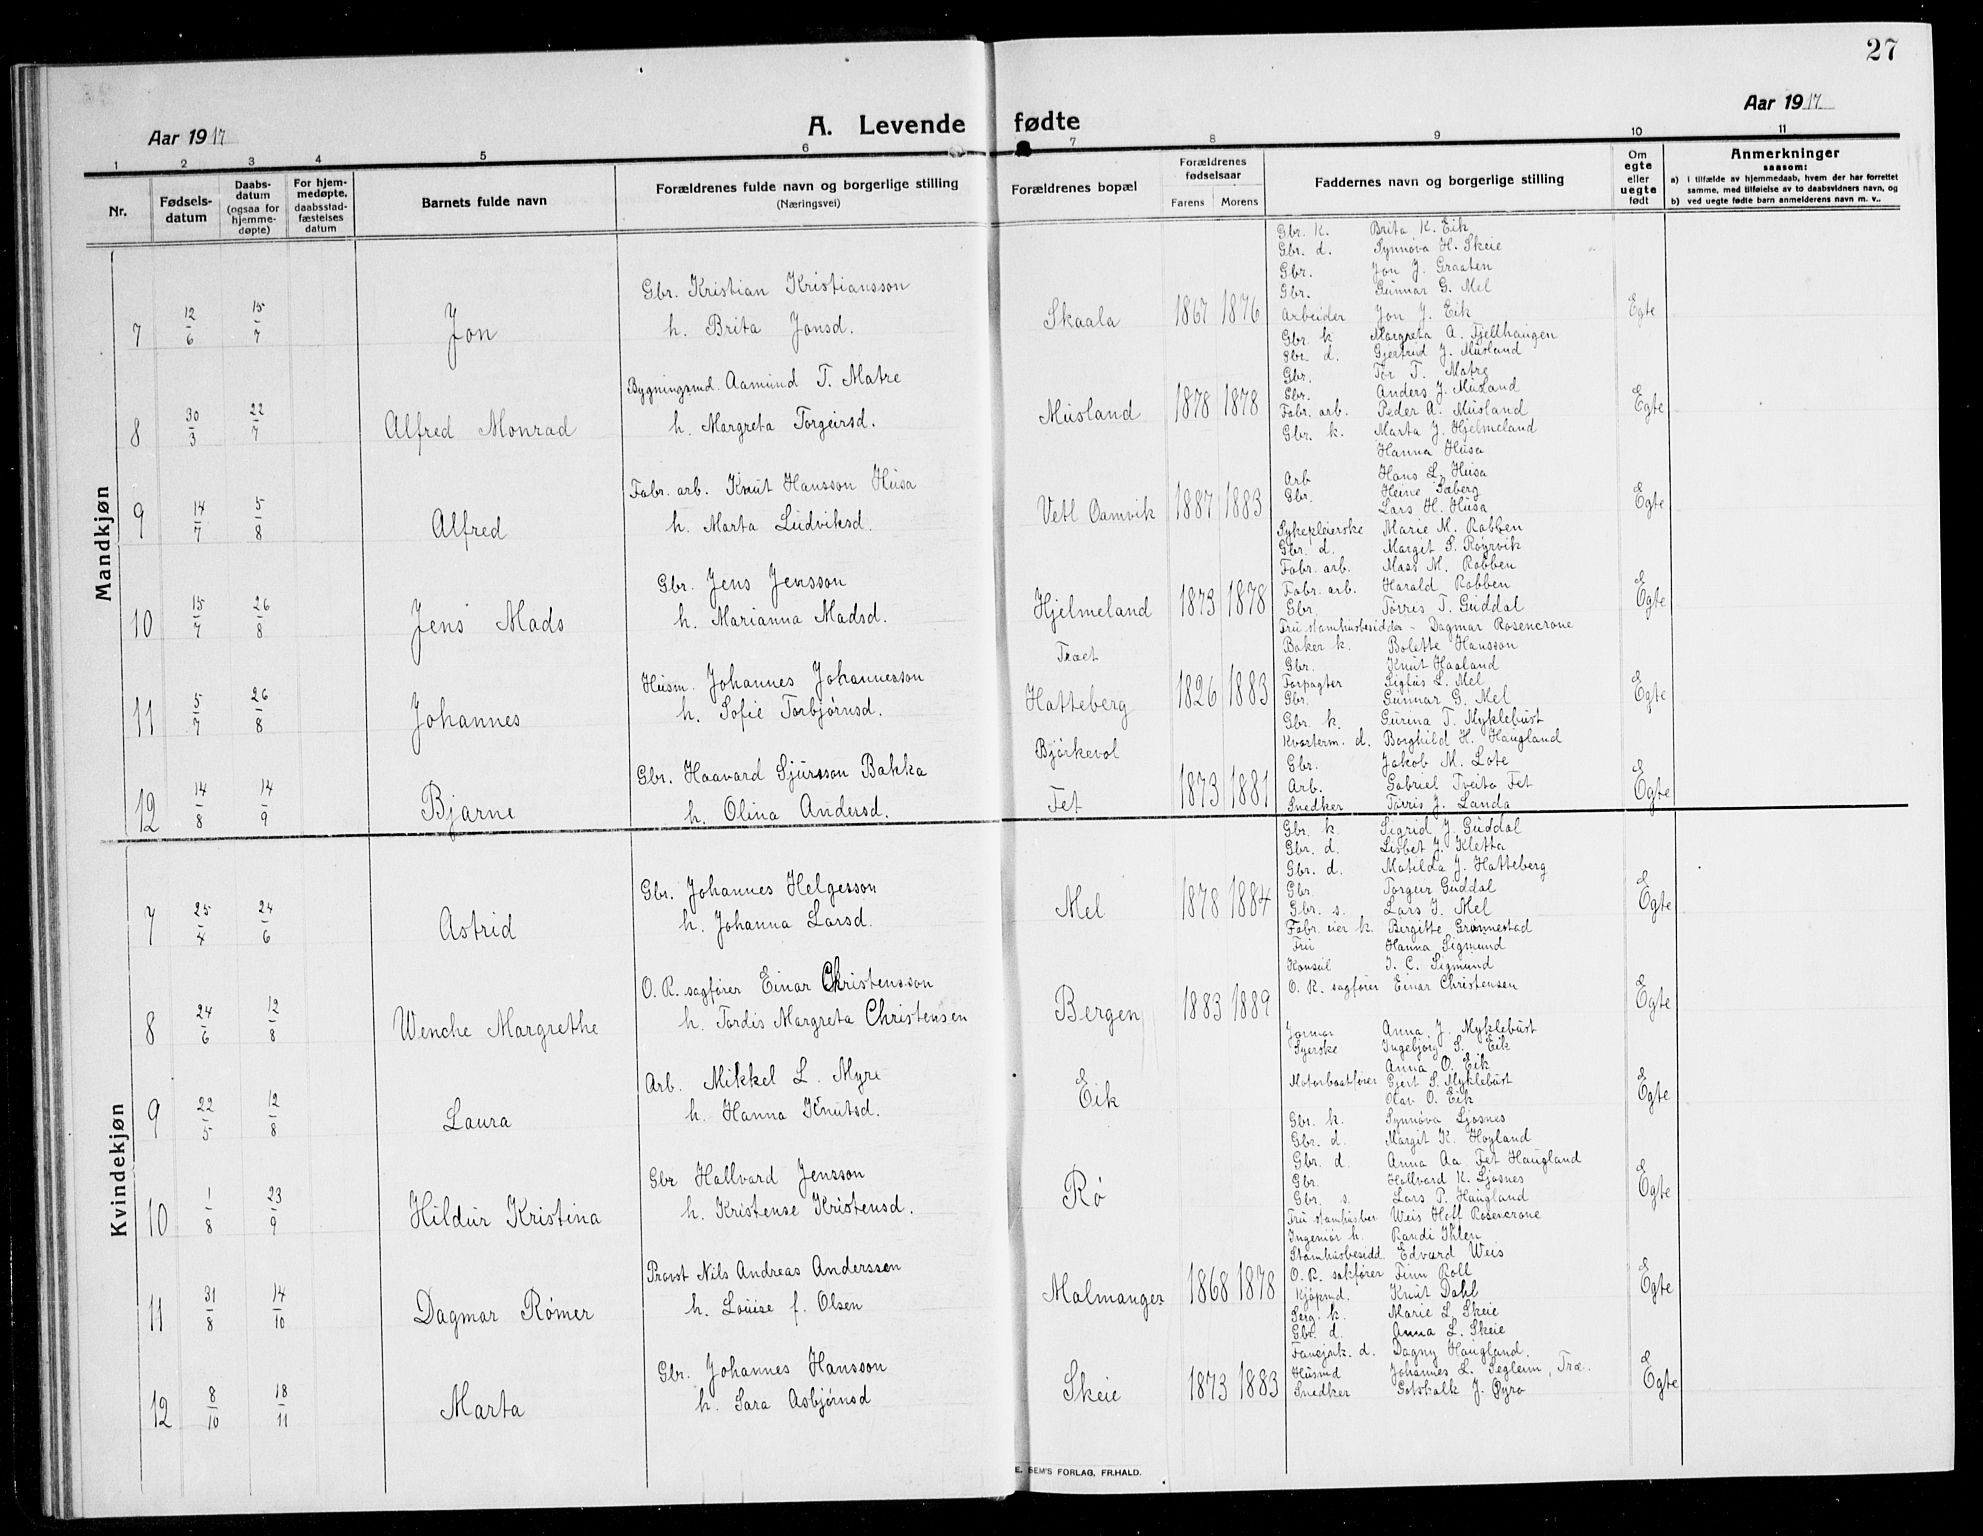 27
Aar 1917
A. Levende fødte
Aar 1917
1 2 3 4 5 6 7 8 9 10 11
Nr.
Fødsels-
datum
Daabs-
datum
(ogsaa for
hjemme-
døpte)
For hjem-
medøpte.
daabsstad-
fæstelses
datum
Barnets fulde navn
Forældrenes fulde navn og borgerlige stilling
(Næringsvei)
Forældrenes bopæl
Forældrenes
fødselsaar
Farens Morens
Faddernes navn og borgerlige stilling
Om
egte
eller
uegte
født
Anmerkninger
saasom:
a) i tilfælde av hjemmedaab, hvem der har forrettet
samme, med tilføielse av to daabsvidners navn, og
b) ved uegte fødte barn anmelderens navn m. v..
Mandkjøn
7 12/6 15/7 Jon
Gbr. Kristian Kristiansson
h. Brita Jonsd.
Skaala 1867 1876
Gbr. K. Brita K. Eik
Gbr. d. Synnøva H. Skeie
Gbr. Jon J. Graaten
Gbr. Gunnar G. Mel
Arbeider Jon J. Eik
Egte
8 30/3 22/7 Alfred Monrad
Bygningsmd. Aamund T. Matre
h. Margreta Torgeirsd.
Musland 1878 1878
Gbr. k Margreta A. Fjellhaugen
Gbr. d. Gjertrud J. Musland
Gbr. Tor T. Matre
Gbr. Anders J. Musland
Fabr. arb. Peder A. Musland
Egte
9 14/7 5/8 Alfred
Fabr. arb. Knut Hansson Husa
h. Marta Ludviksd.
Vetl Oamvik 1887 1883
Gbr. k. Marta J. Hjelmeland
Hanna Husa
Arb Hans L. Husa
Gbr. Heine Sæberg
Lars H. Husa
Egte
10 15/7 26/8 Jens Mads
Gbr. Jens Jensson
h. Marianna Madsd.
Hjelmeland 1873 1878
Sykepleierske Marie M. Robben
Gbr. d. Margit S. Røyrvik
Fabr. arb. Mass M. Robben
Fabr. arb. Harald Robben
Gbr. Torris T. Guddal
Egte
11 5/7 26/8 Johannes
Husm. Johannes Johannesson
h. Sofie Torbjørnsd.
Træet
Hatteberg 1826 1883
Fru stamhusbesidder - Dagmar Rosencrone
Baker k. Bolette Hansson
Gbr. Knut Haaland
Forpagter Sigfus L. Mel
Gbr. Gunnar G. Mel
Egte
12 14/8 14/9 Bjarne
Gbr. Haavard Sjursson Bakka
h. Olina Andersd.
Bjørkevol
Fet 1873 1881
Gbr. k. Gurina T. Myklebust
Kvarterm. d. Borghild H. Haugland
Gbr. Jakob M. Lote
Arb. Gabriel Tveita Fet
Snedker Torris J. Landa
Egte
Kvindekjøn
7 25/4 24/6 Astrid
Gbr. Johannes Helgesson
h. Johanna Larsd.
Mel 1878 1884
Gbr. k Sigrid J. Guddal
Gbr. d. Lisbet J. Kletta
Gbr. d. Matilda J. Hatteberg
Gbr. Torgeir Guddal
Gbr. s. Lars J. Mel
Egte
8 24/6 12/8 Wenche Margrethe
O. R. sagfører Einar Christensson
h. Tordis Margreta Christensen
Bergen 1883 1889
Fabr. eier k. Bergitte Grønnestad
Fru Hanna Sigmund
Konsul J. C. Sigmund
O. R. sagfører Einar Christensen
Egte
9 22/5 12/8 Laura
Arb. Mikkel L. Myre
h. Hanna Knutsd.
Eik
Jormor Anna J. Myklebust
Syerske Ingebjørg S. Eik
Anna O. Eik
Motorbaatfører Gjert S. Myklebust
Olav O. Eik
Egte
10 1/8 23/9 Hildur Kristina
Gbr Hallvard Jensson
h. Kristense Kristensd.
Rø
Gbr. k. Synnøva Ljosnes
Gbr. d. Margit K. Høyland
Gbr. d. Anna Aa Fet Haugland
Gbr. Hallvard K. Ljosnes
Gbr. s. Lars P. Haugland
Egte
11 31/8 14/10 Dagmar Rømer
Provst Nils Andreas Anderssen
h. Louise f. Olsen
Malmanger 1868 1878
Fru stamhusbes Weis Hoff Rosencrone
Ingeniør h. Randi Ihlen
Stamhusbesidd. Edvard Weis
O. R. sakfører Finn Roll
Kjøpmd. Knut Dahl
Egte
12 8/10 18/11 Marta
Gbr. Johannes Hansson
h. Sara Asbjørnsd
Skeie 1873 1883
Serg. k. Marie L. Skeie
Gbr. d. Anna L. Skeie
Fanejnk. d. Dagny Haugland.
Husmd Johannes L. Seglem, Træ.
Snedker Gotskalk J. Øyro
Egte
E. SEM'S FORLAG, FR.HALD.